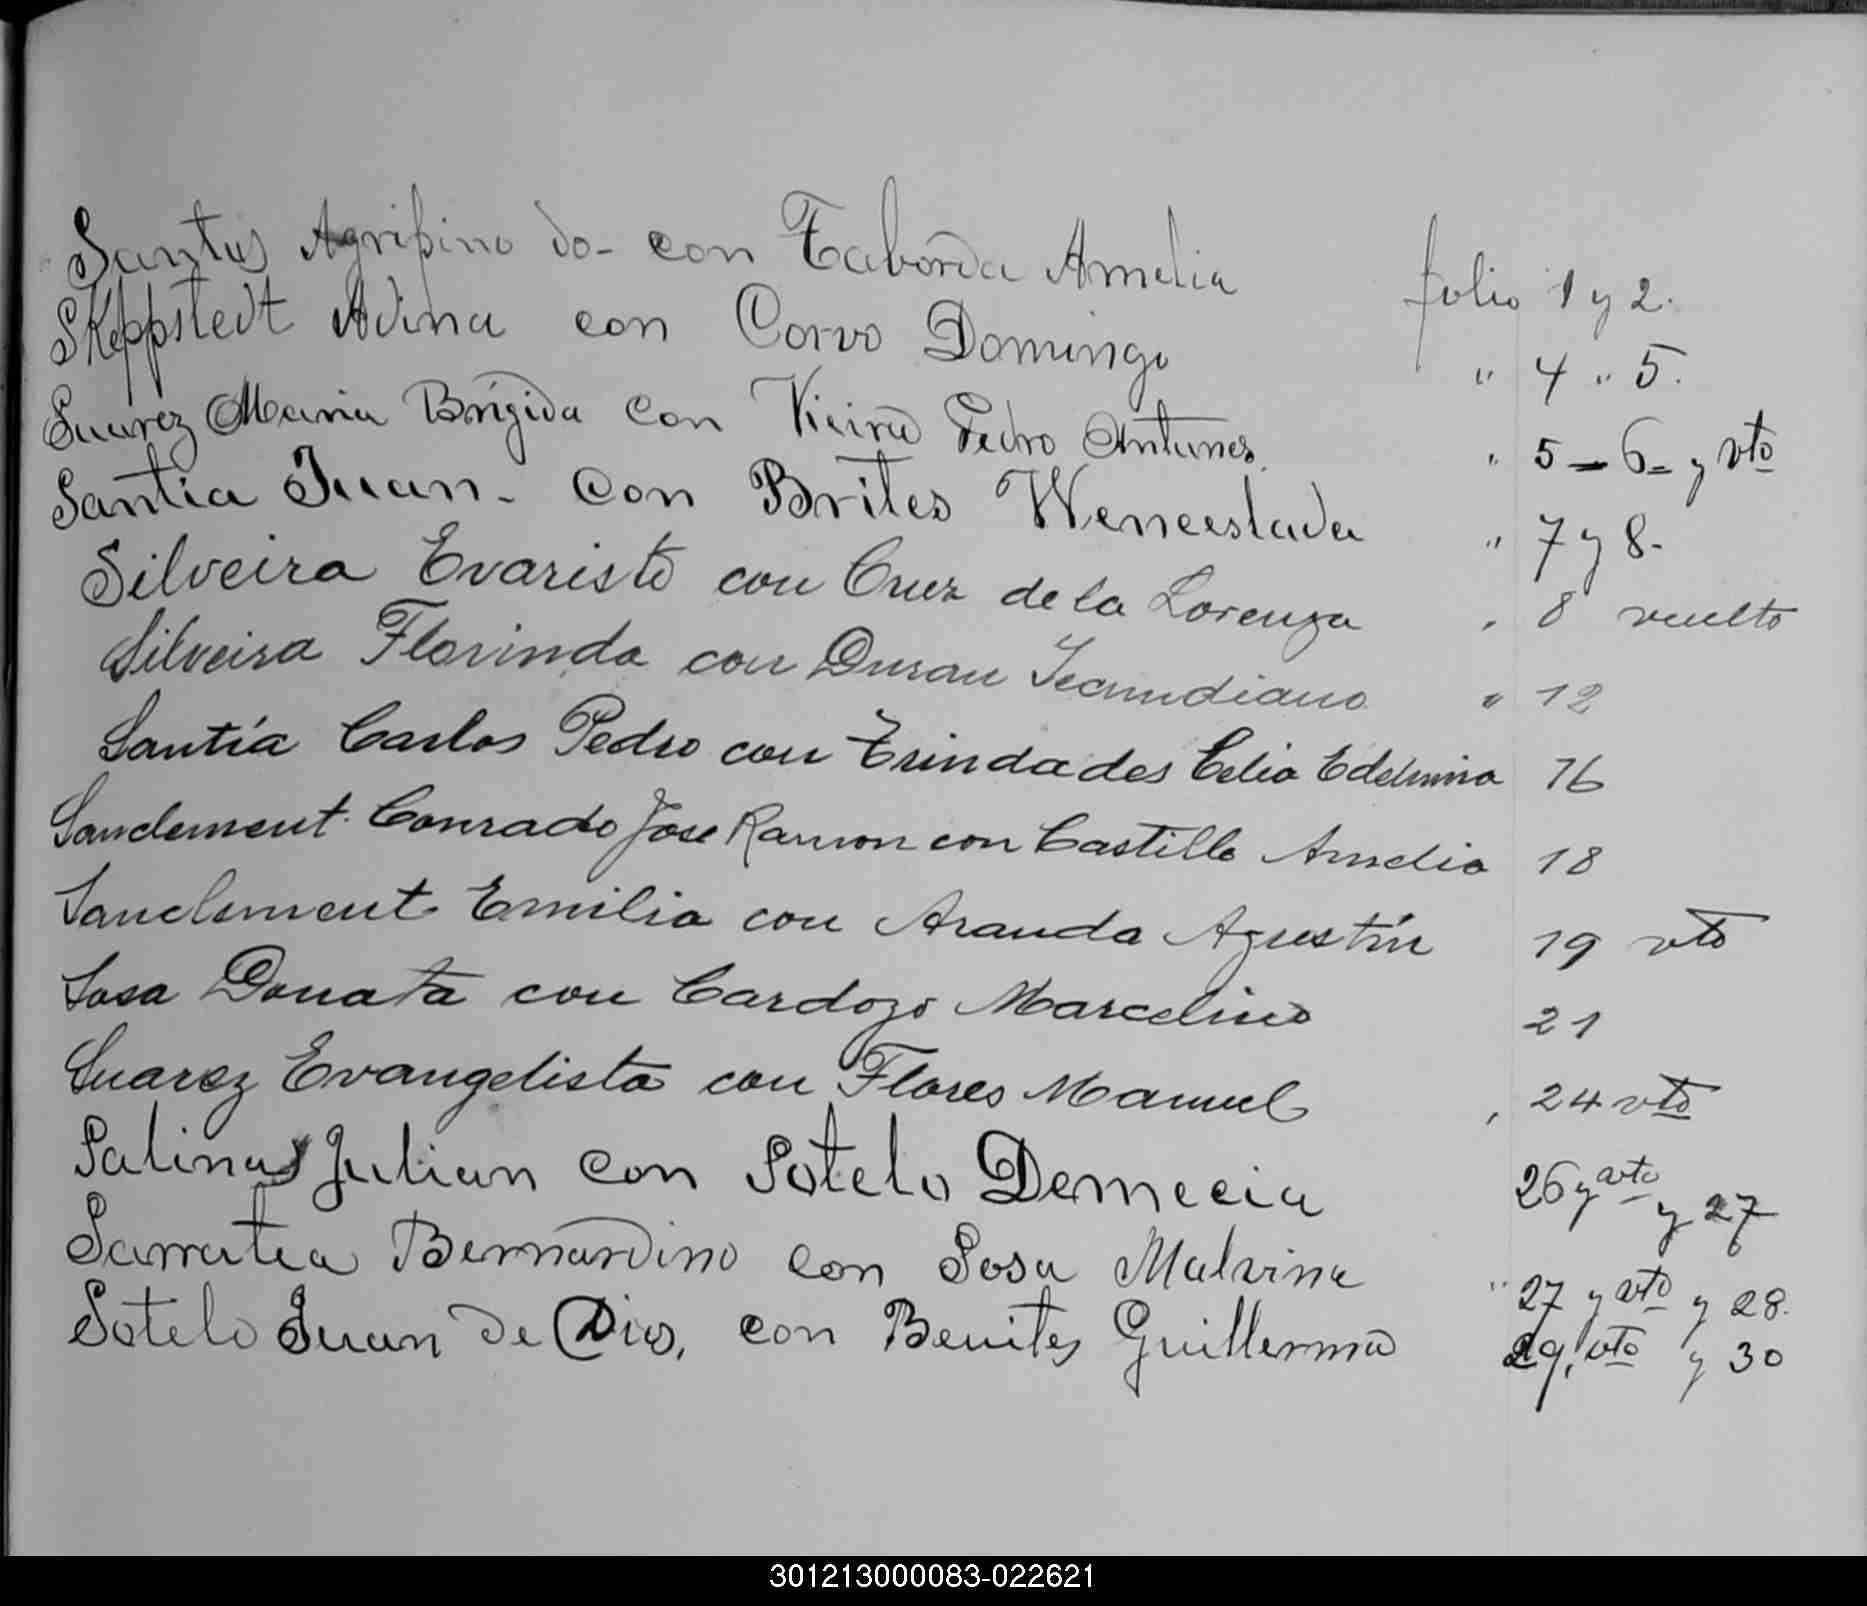 Santos Agripino do- con Taborda Amelia folio 1 y 2.
Skeppstedt Adina con Corvo Domingo " 4 " 5.
Suarez Maria Brigida con Vieira Pedro Antunes. " 5 - 6 - y vto
Santia Juan - con Brites Wenceslada " 7 y 8.
Silveira Evaristo con Cruz de la Lorenza " 8 vuelto
Silveira Florinda con Duran Secundiano " 12
Santía Carlos Pedro con Trindades Celia Edelmira 16
Sanclement Conrado Jose Ramon con Castillo Amelia 18
Sanclement Emilia con Aranda Agustín 19 vto
Sosa Donata con Cardozo Marcelino 21
Suarez Evangelista con Flores Manuel , 24 vto
Salinas Julian con Sotelo Demecia 26 y vto y 27
Sarratea Bernardino con Sosa Malvina " 27 y vto y 28.
Sotelo Juan de Dios, con Benites Guillerma 29, vto y 30
301213000083-022621